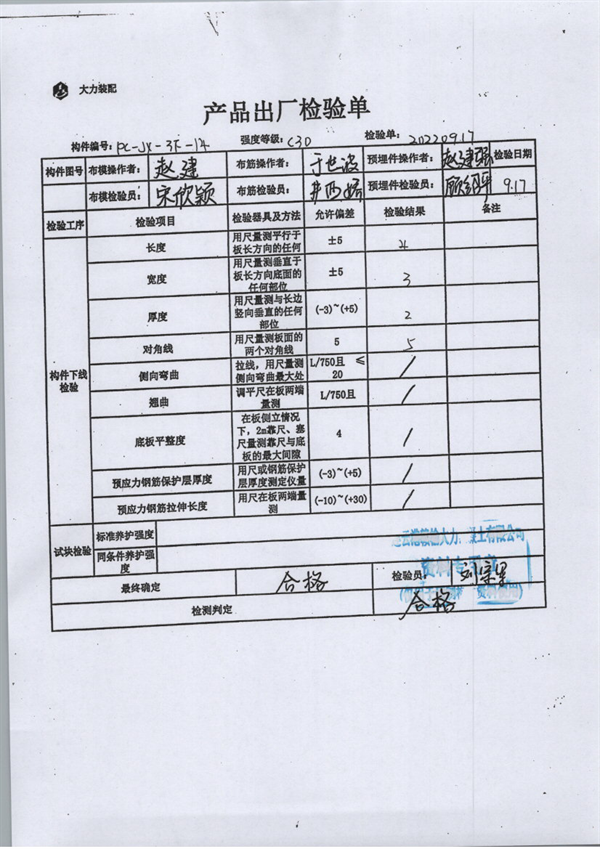 大力装配
产品出厂检验单
构件编号: PC-JX-3F-14 强度等级: C30 检验单: 20220917
构件图号 布模操作者: 赵建 布筋操作者: 于世波 预埋件操作者: 赵建强 检验日期
布模检验员: 宋欣颖 布筋检验员: 预埋件检验员: 9.17
检验工序 检验项目 检验器具及方法 允许偏差 检验结果 备注
构件下线检验
长度 用尺量测平行于板长方向的任何 ±5 4
宽度 用尺量测垂直于板长方向底面的任何部位 ±5 3
厚度 用尺量测与长边竖向垂直的任何部位 (-3)~(+5) 2
对角线 用尺量测板面的两个对角线 5 5
侧向弯曲 拉线，用尺量测侧向弯曲最大处 L/750且 ≤ 20 /
翘曲 调平尺在板两端量测 L/750且 /
底板平整度 在板侧立情况下，2m靠尺、塞尺量测靠尺与底板的最大间隙 4 /
预应力钢筋保护层厚度 用尺或钢筋保护层厚度测定仪量 (-3)~(+5) /
预应力钢筋拉伸长度 用尺在板两端量测 (-10)~(+30) /
试块检验 标准养护强度
同条件养护强度
最终确定 合格 检验员:
检测判定 合格